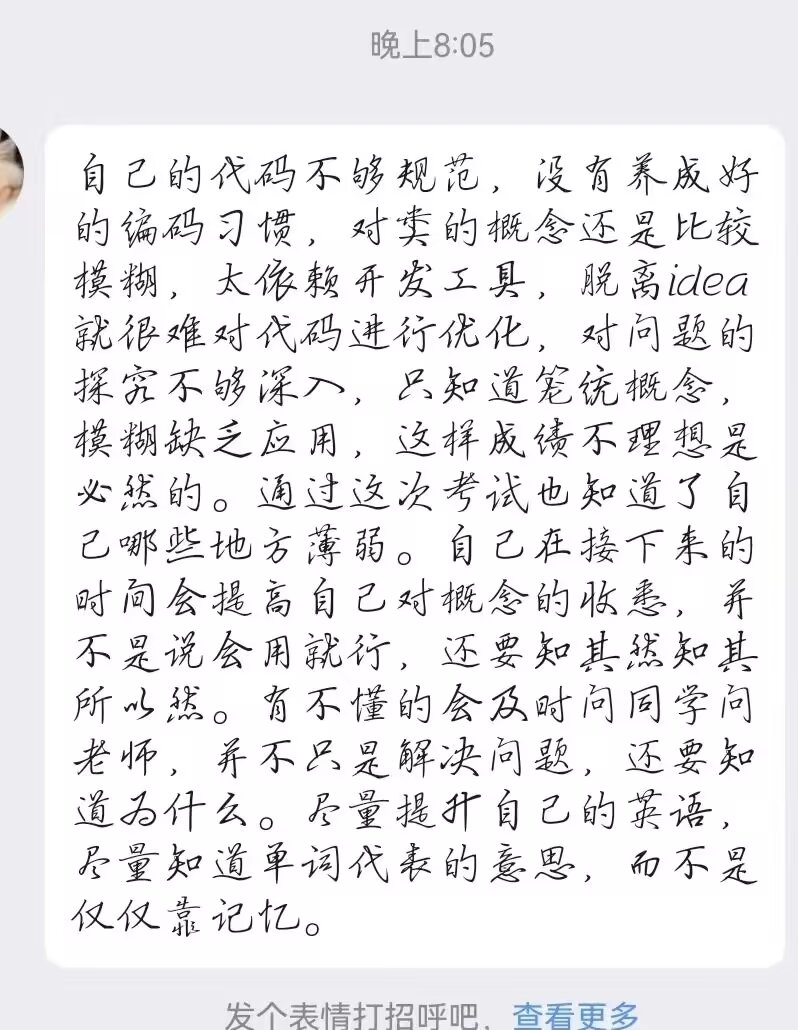 晚上8:05
自己的代码不够规范，没有养成好
的编码习惯，对类的概念还是比较
模糊，太依赖开发工具，脱离idea
就很难对代码进行优化，对问题的
探究不够深入，只知道笼统概念，
模糊缺乏应用，这样成绩不理想是
必然的。通过这次考试也知道了自
己哪些地方薄弱。自己在接下来的
时间会提高自己对概念的收悉，并
不是说会用就行，还要知其然知其
所以然。有不懂的会及时问同学问
老师，并不只是解决问题，还要知
道为什么。尽量提升自己的英语，
尽量知道单词代表的意思，而不是
仅仅靠记忆。
发个表情打招呼吧，查看更多